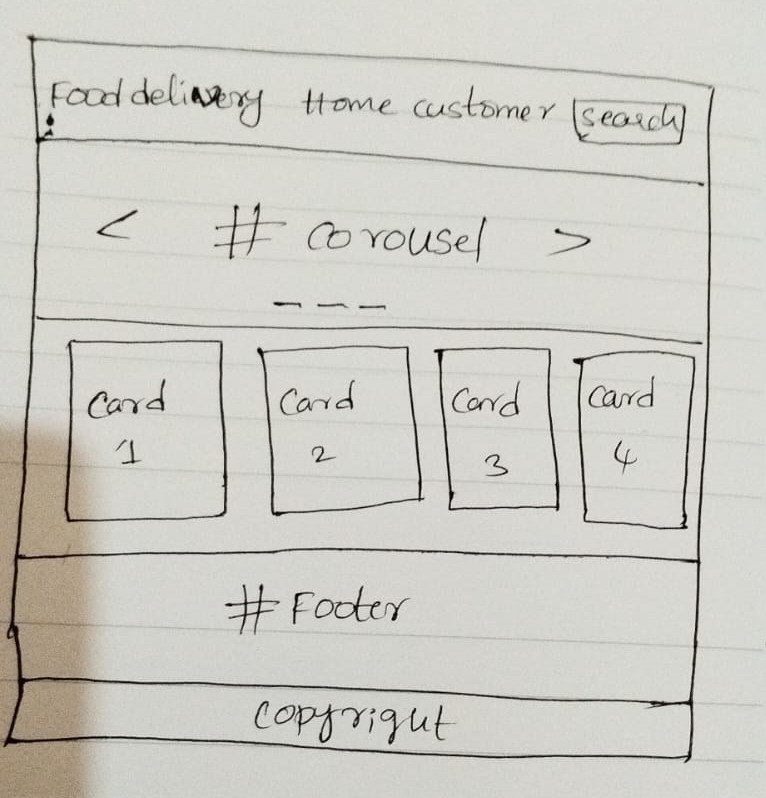 Food delivery Home customer search
< # corousel >
Card Card Card Card
1 2 3 4
# Footer
copyright